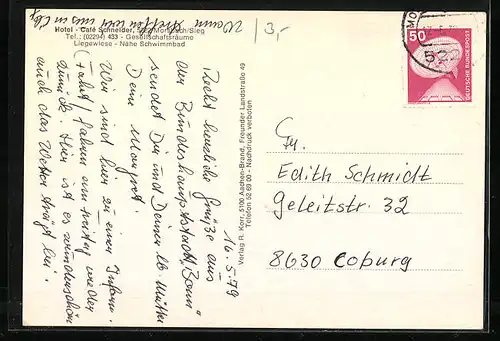 Hotel - Café Schneider, Morsbach/Sieg
Tel.: (02294) 433 - Gesellschaftsräume
Liegewiese - Nähe Schwimmbad
3,-
Wann treffen wir uns mal in Cbg
16.5.79
Recht herzliche Grüße aus
der Bundeshauptstadt "Bonn"
sendet Dir und Deiner lb. Mutter
Deine Margot.
Wir sind hier zu einer Inform.
Fahrt fahren am Freitag wieder
zurück. Hier ist es wunderschön
auch das Wetter trägt bei.
Verlag R. Korr, 5100 Aachen-Brand, Freunder Landstraße 49
Telefon 52 69 00 - Nachdruck verboten
50
DEUTSCHE BUNDESPOST
MO
522
Frl.
Edith Schmidt
Geleitstr. 32
8630 Coburg